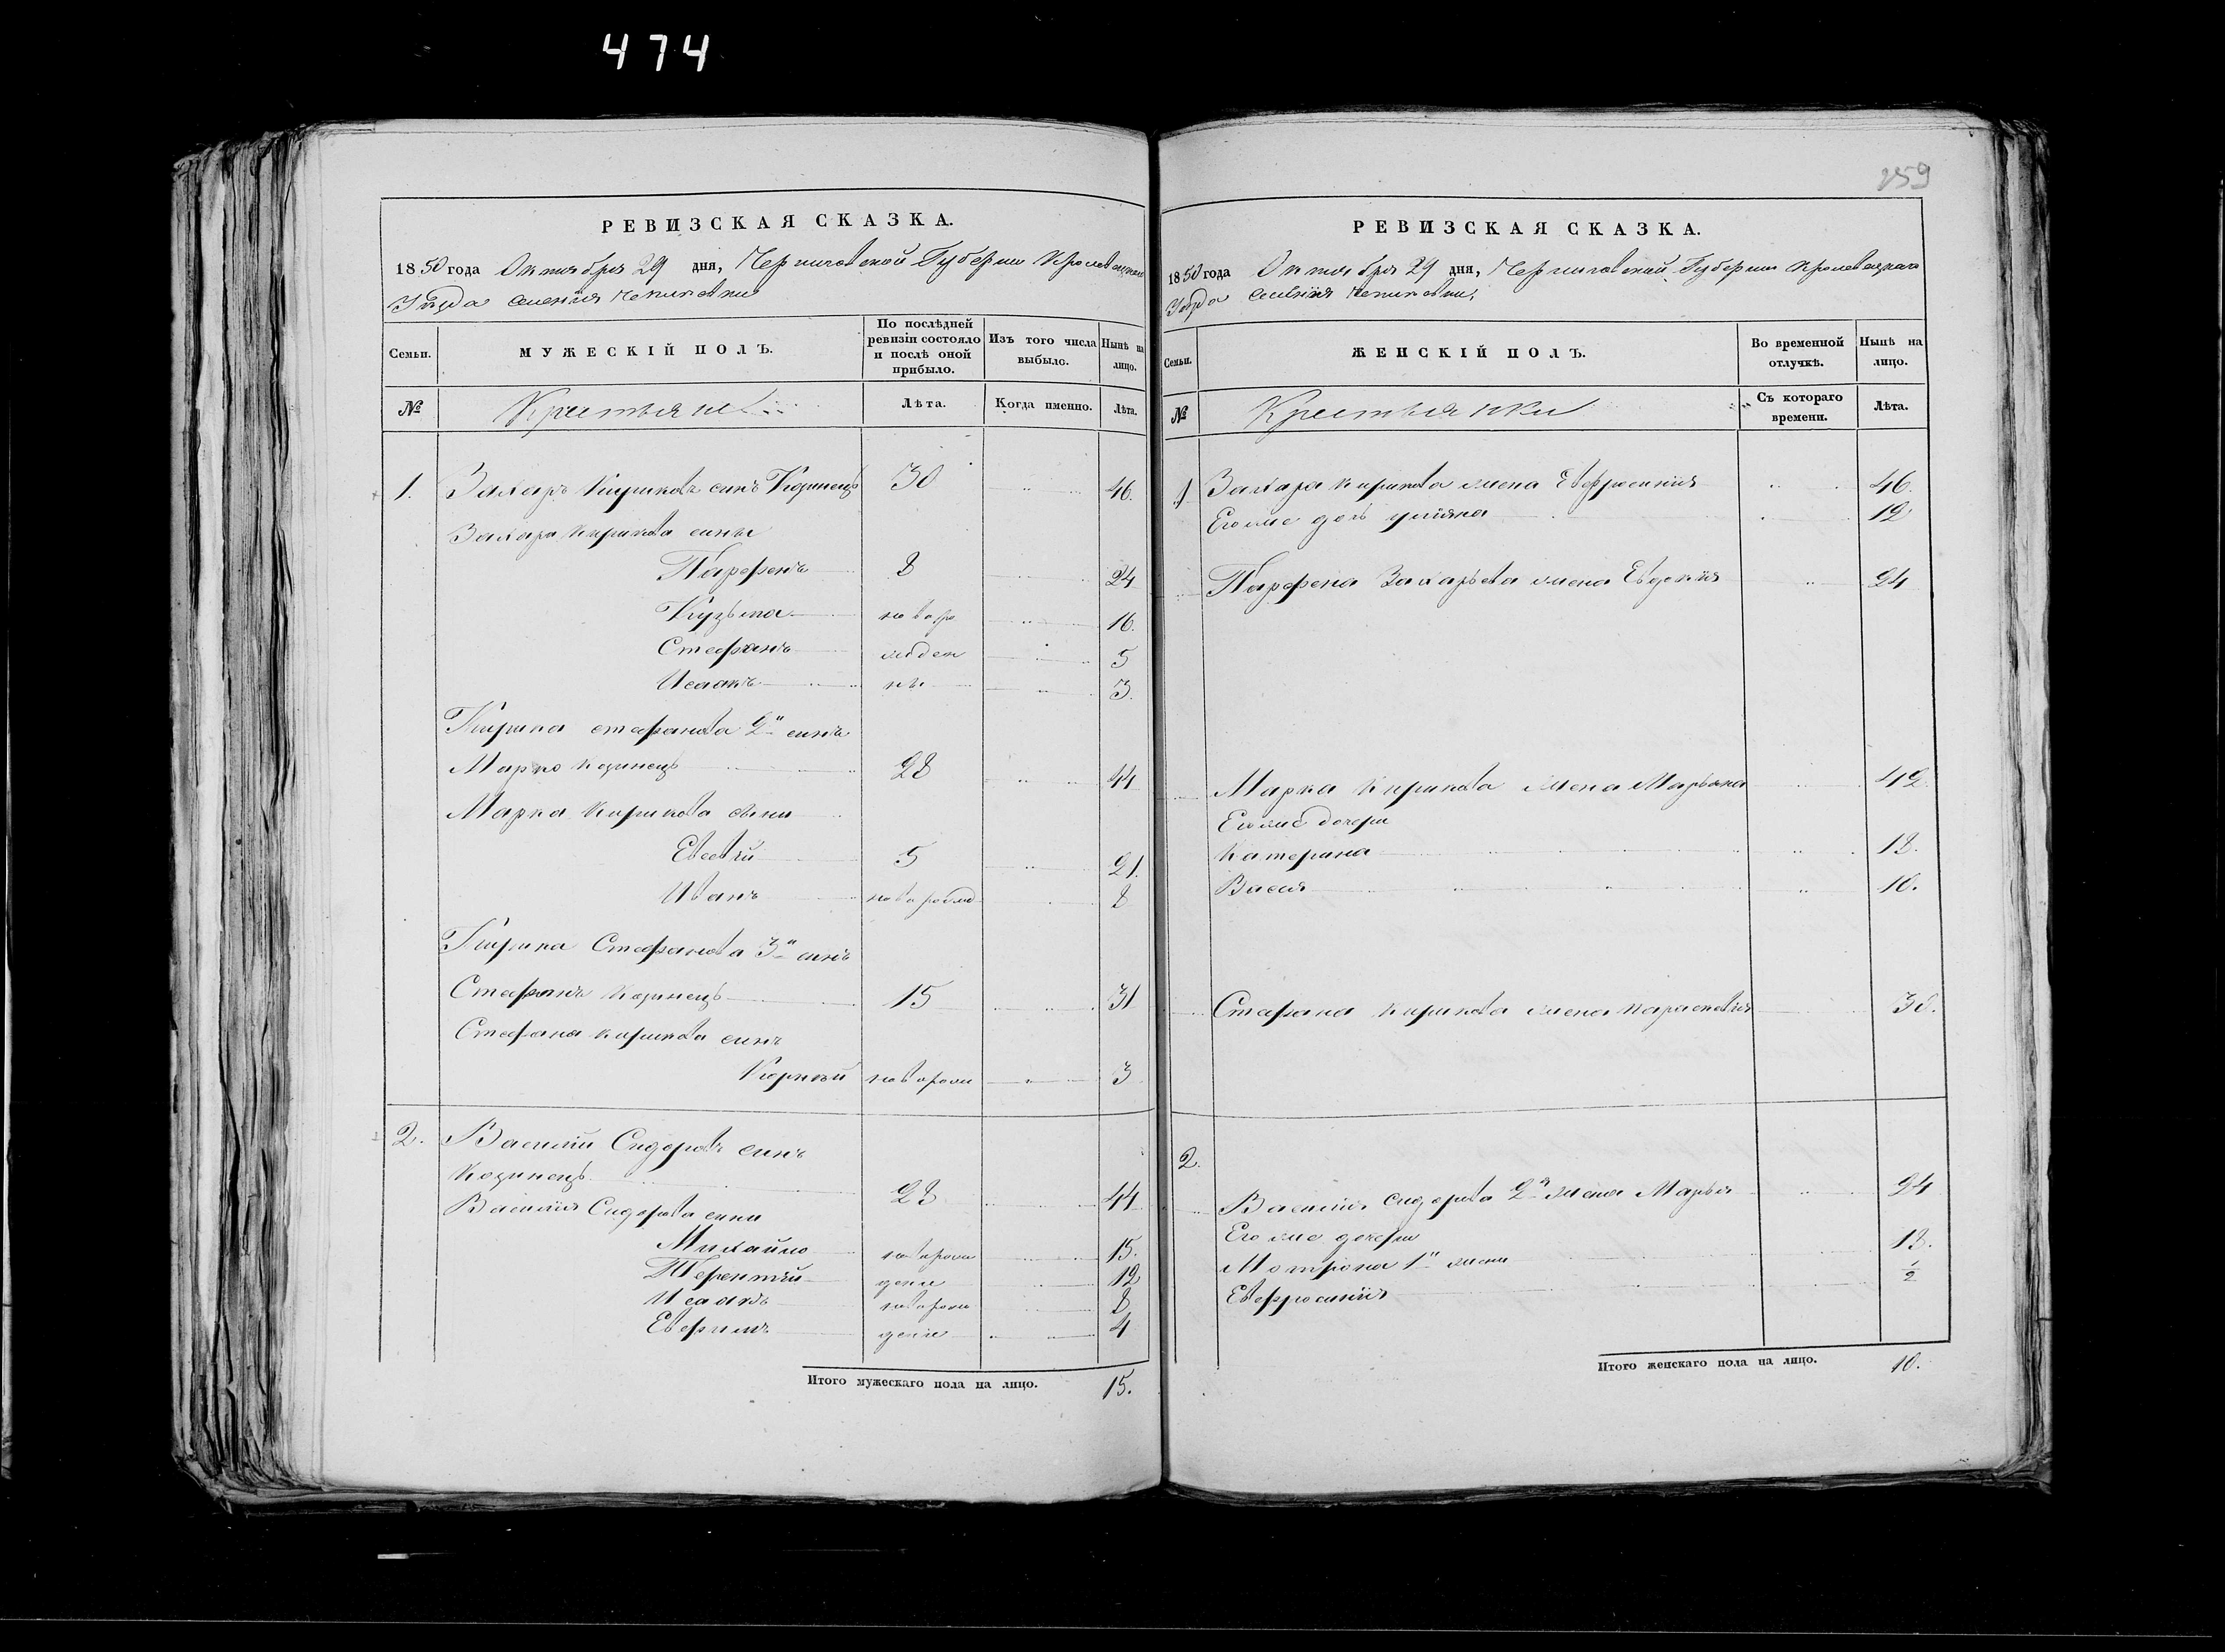 474
РЕВИЗСКАЯ СКАЗКА.
1850 года Октября 29 дня, Черниговской Губернии Кролевецкаго
Уѣзда селенія Чепиковки
Семьи. МУЖЕСКІЙ ПОЛЪ. По послѣдней ревизіи состояло и послѣ оной прибыло. Изъ того числа выбыло. Нынѣ на лицо.
№ Крестьяне Лѣта. Когда именно. Лѣта.
1. Захаръ Кириковъ синъ Коринецъ 30 46.
Захара Кирикова сины
Парфенъ 8 24
Кузьма новоро 16.
Стефанъ жден 5
Исаакъ ны 3.
Кирика стефанова 2й синъ
Марко Коринецъ 28 44
Марка Кирикова сыни
Евсевій 5 21.
Иванъноворожд 8
Кирика Стефанова 3й синъ
Стефанъ Коринецъ 15 31
Стефана Кирикова синъ
Корній новорож 3
2. Василій Сидоровъ синъ
Коринецъ 28 44
Василія Сидорова сини
Михайло новорож 15.
Терентій дение 12
Исаакъ новорож 8
Евфимъ дение 4
Итого мужескаго пола на лицо. 15.
259
РЕВИЗСКАЯ СКАЗКА.
1850 года Октября 29 дня, Черниговской Губернии Кролевецкаго
Уѣзда селенія Чепиковки,
Семьи. ЖЕНСКІЙ ПОЛЪ. Во временной отлучкѣ. Нынѣ на лицо.
№ Крестьянки Съ котораго времени. Лѣта.
1 Захара Кирикова жена Евфросинія 46.
Его же дочь уліяна 12
Парфена Захарьева жена Евдокія 24
Марка Кирикова жена Марьяна 42
Его же дочери
Катерина 18.
Васся 10.
Стефана Кирикова жена Параскевія 30.
2.
Василія Сидорова 2я жена Марья 24
Его же дочери
Мотрона 1й жены 13.
Евфросинія 1/2
Итого женскаго пола на лицо. 10.